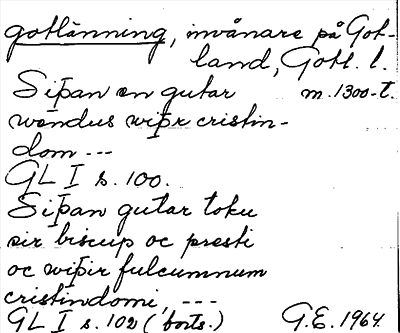 gotlänning, invånare på Got-
land, Gotl. l.
Siþan en gutar m. 1300-t.
wendus wiþr cristin-
dom ---
GL I s. 100.
Siþan gutar toku
sir biscup oc presti
oc wiþir fulcumnum
cristindomi, ---
GL I s. 102 (forts.) G.E. 1964